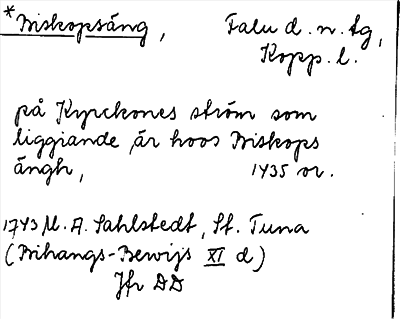 *Biskopsäng, Falu d. n. tg,
Kopp. l.
på Kyrckones ström som
liggiande är hoos Biskops
ängh, 1435 or.
1743 M. A. Sahlstedt, St. Tuna
(Bihangs-Bewijs XI d)
Jfr DD